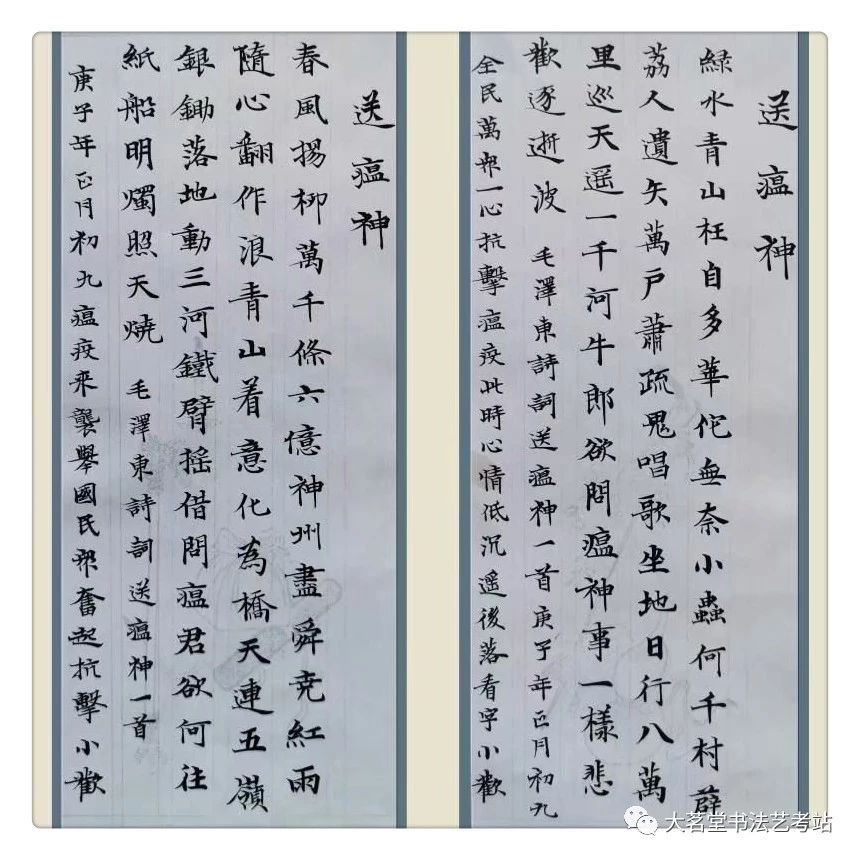 送瘟神
綠水青山枉自多華佗無奈小蟲何千村薜
荔人遺矢萬户蕭疏鬼唱歌坐地日行八萬
里巡天遥一千河牛郎欲問瘟神事一樣悲
歡逐逝波 毛澤東詩詞送瘟神一首庚子年正月初九
全民萬眾一心抗擊瘟疫此時心情低沉遥後落看字小歡
送瘟神
春風揚柳萬千條六億神州盡舜尭紅雨
隨心翻作浪青山着意化為橋天連五嶺
銀鋤落地動三河鐵臂摇借問瘟君欲何往
紙船明燭照天燒 毛澤東詩詞送瘟神一首
庚子年正月初九瘟疫來襲舉國民眾奮起抗擊小歡
大茗堂书法艺考站